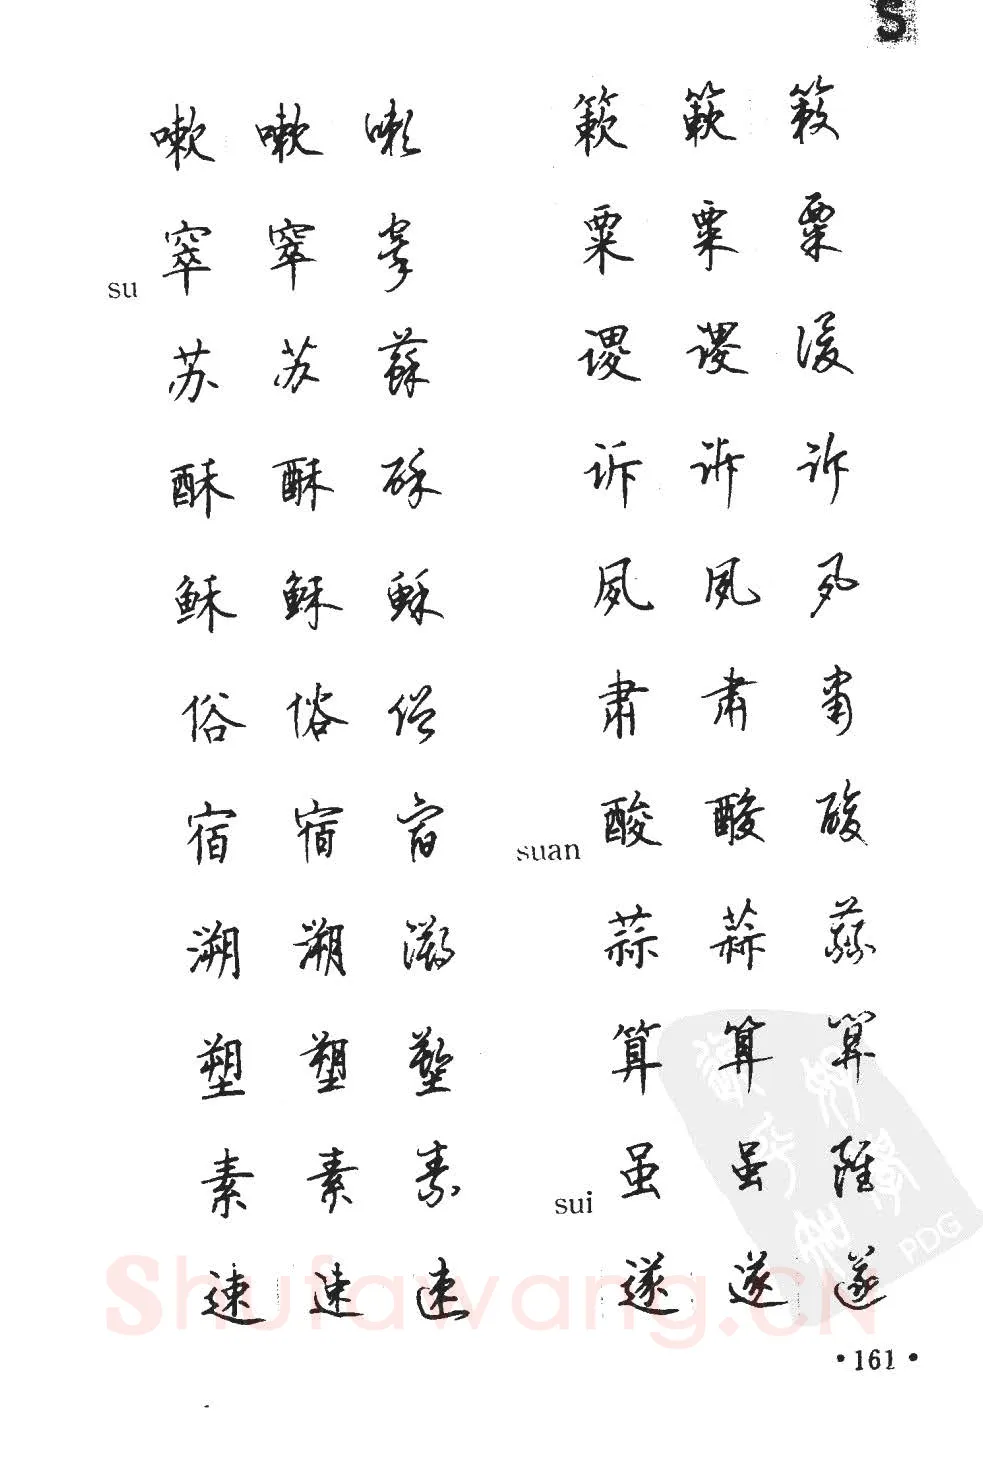 S
嗽 嗽 嗽
su
窣 窣 窣
苏 苏 蘇
酥 酥 酥
稣 稣 稣
俗 俗 俗
宿 宿 宿
溯 溯 溯
塑 塑 塑
素 素 素
速 速 速
簌 簌 簌
粟 粟 粟
谡 谡 谡
诉 诉 诉
夙 夙 夙
肃 肃 肅
suan
酸 酸 酸
蒜 蒜 蒜
算 算 算
sui
虽 虽 雖
遂 遂 遂
PDG
Shufawang.CN
·161·